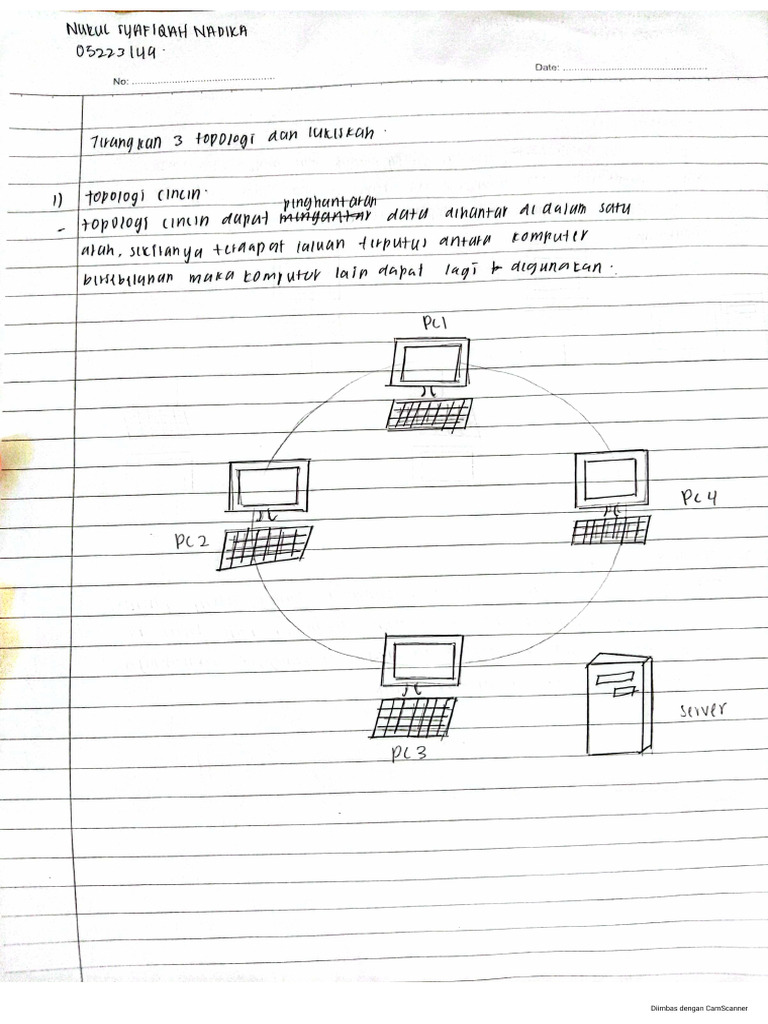 NURUL SYAFIQAH NADIKA
05223149.
Date:
No:
Terangkan 3 topologi dan lukiskan.
1) topologi cincin.
penghantaran
- topologi cincin dapat mengantar data dihantar di dalam satu
arah, sekiranya terdapat laluan terputus antara komputer
bersebelahan maka komputer lain dapat lagi digunakan.
PC1
PC4
PC2
server
PC3
Diimbas dengan CamScanner